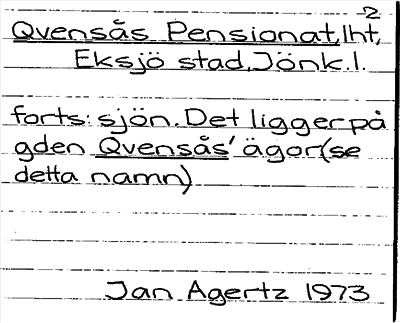 2
Qvensås Pensionat, lht,
Eksjö stad, Jönk. l.
forts: sjön. Det ligger på
gden Qvensås' ägor (se
detta namn)
Jan Agertz 1973